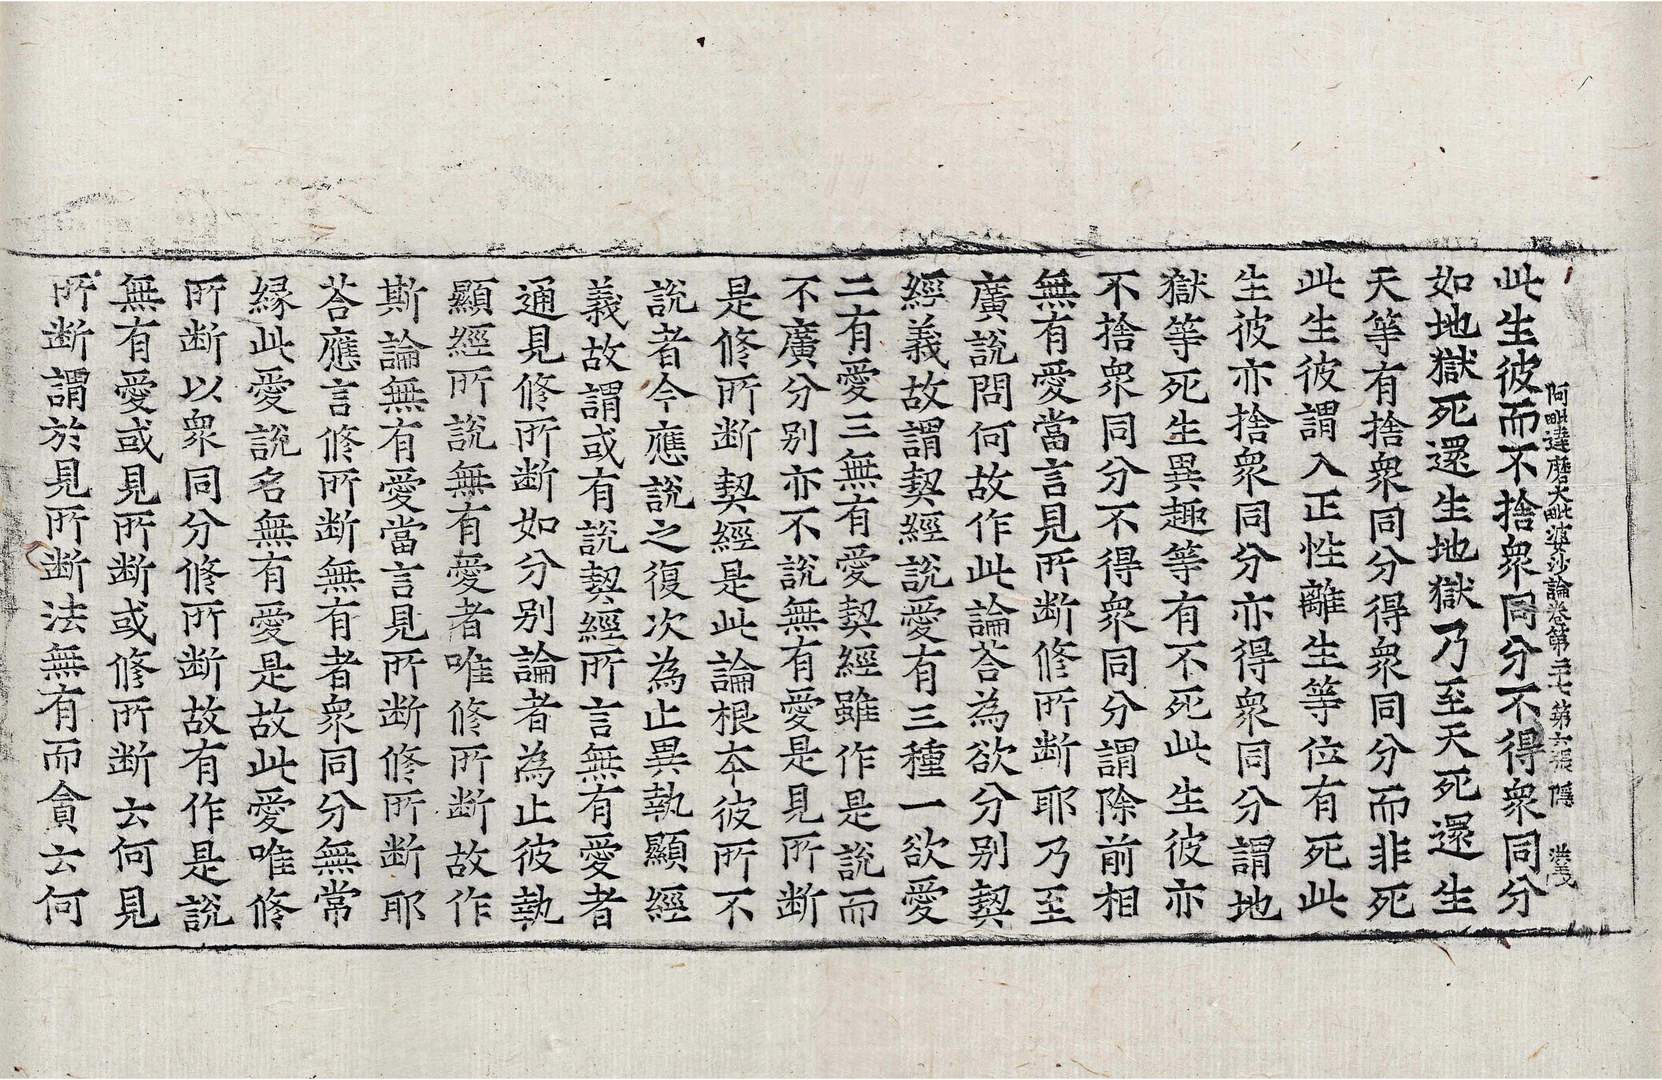 阿毗達磨大毗婆沙論卷第二十七 第六張 隱
此生彼而不捨衆同分不得衆同分
如地獄死還生地獄乃至天死還生
天等有捨衆同分得衆同分而非死
此生彼謂入正性離生等位有死此
生彼亦捨衆同分亦得衆同分謂地
獄等死生異趣等有不死此生彼亦
不捨衆同分不得衆同分謂除前相
無有愛當言見所斷修所斷耶乃至
廣說問何故作此論荅為欲分別契
經義故謂契經說愛有三種一欲愛
二有愛三無有愛契經雖作是說而
不廣分別亦不說無有愛是見所斷
是修所斷契經是此論根本彼所不
說者今應說之復次為止異執顯經
義故謂或有說契經所言無有愛者
通見修所斷如分別論者為止彼執
顯經所說無有愛者唯修所斷故作
斯論無有愛當言見所斷修所斷耶
荅應言修所斷無有者衆同分無常
緣此愛說名無有愛是故此愛唯修
所斷以衆同分修所斷故有作是說
無有愛或見所斷或修所斷云何見
所斷謂於見所斷法無有而貪云何